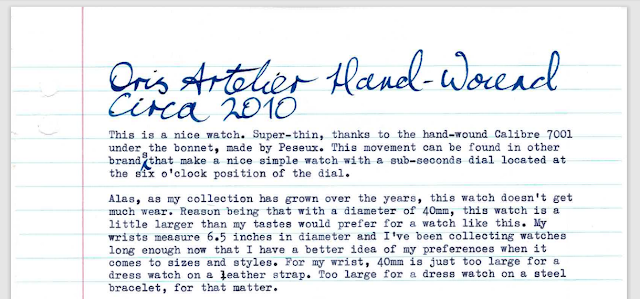 Oris Artelier Hand-Wound
Circa 2010
This is a nice watch. Super-thin, thanks to the hand-wound Calibre 7001
under the bonnet, made by Peseux. This movement can be found in other
brands that make a nice simple watch with a sub-seconds dial located at
the six o'clock position of the dial.
Alas, as my collection has grown over the years, this watch doesn't get
much wear. Reason being that with a diameter of 40mm, this watch is a
little larger than my tastes would prefer for a watch like this. My
wrists measure 6.5 inches in diameter and I've been collecting watches
long enough now that I have a better idea of my preferences when it
comes to sizes and styles. For my wrist, 40mm is just too large for a
dress watch on a leather strap. Too large for a dress watch on a steel
bracelet, for that matter.